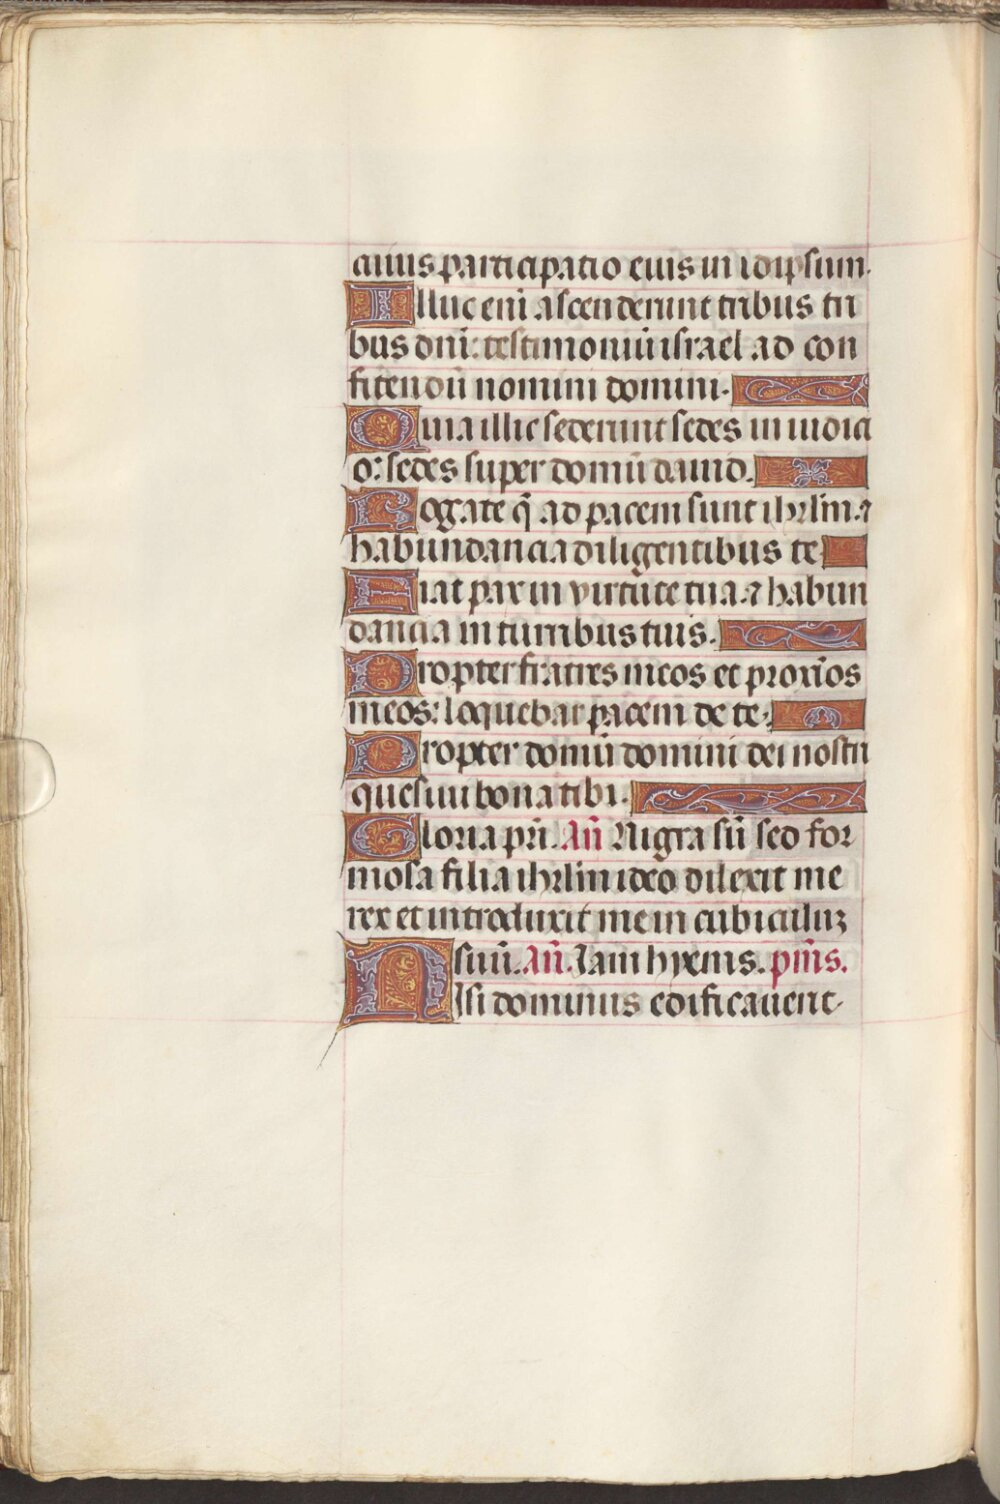 cuius participatio eius in idipsum.
Illuc eni̅ ascenderunt tribus tri
bus dn̅i: testimoniu̅ israel ad con
fitendu̅ nomini domini.
Quia illic sederunt sedes in iudici
o: sedes super domu̅ dauid.
Rogate q̅ ad pacem sunt ihrlm̅. ⁊
habundancia diligentibus te
Fiat pax in virtute tua. ⁊ habun
dancia in turribus tuis.
Propter fratres meos et proxi̅os
meos: loquebar pacem de te:
Propter domu̅ domini dei nostri
quesiui bona tibi.
Gloria pr̅i. An̅ Nigra su̅ sed for
mosa filia ihrlm̅ ideo dilexit me
rex et introduxit me in cubiculuꝫ
suu̅. An̅. Iam hyems. ps̅m̅s.
Nisi dominus edificauerit